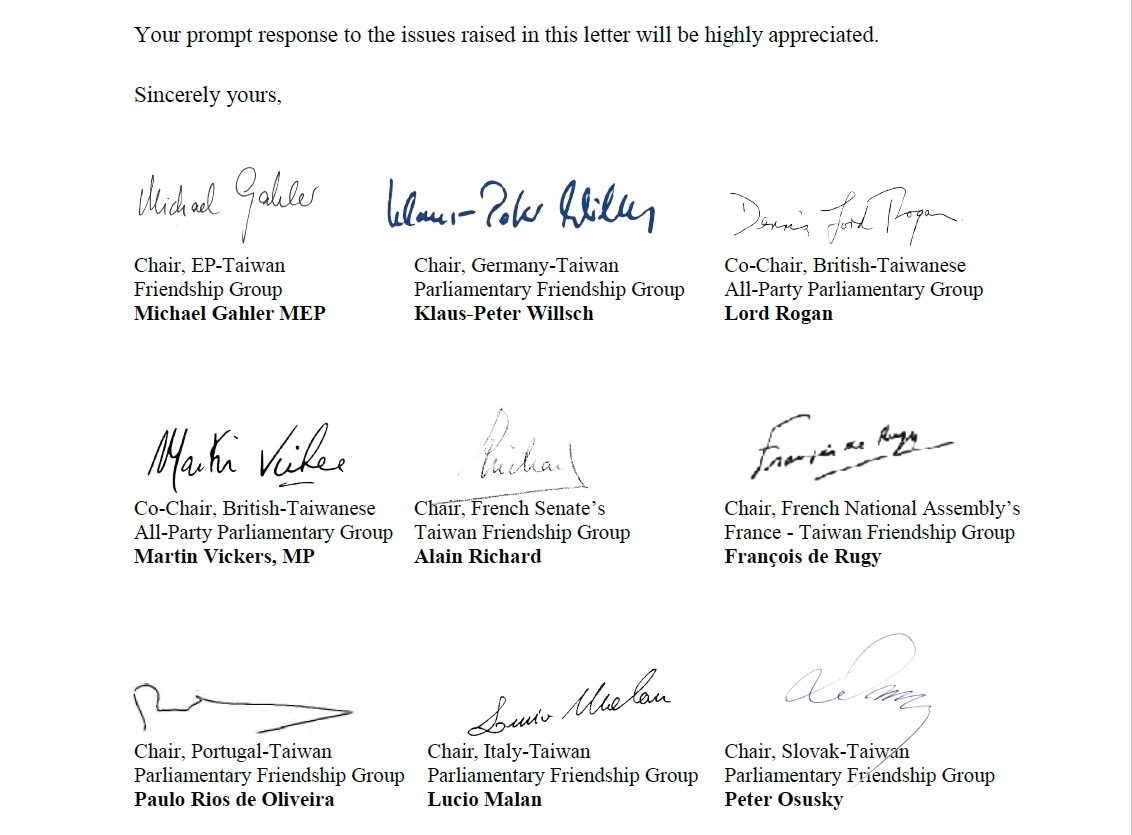 Your prompt response to the issues raised in this letter will be highly appreciated.
Sincerely yours,
Michael Gahler
Klaus-Peter Willsch
Dennis Lord Rogan
Chair, EP-Taiwan
Friendship Group
Michael Gahler MEP
Chair, Germany-Taiwan
Parliamentary Friendship Group
Klaus-Peter Willsch
Co-Chair, British-Taiwanese
All-Party Parliamentary Group
Lord Rogan
Martin Vickers
Richard
François de Rugy
Co-Chair, British-Taiwanese
All-Party Parliamentary Group
Martin Vickers, MP
Chair, French Senate’s
Taiwan Friendship Group
Alain Richard
Chair, French National Assembly’s
France - Taiwan Friendship Group
François de Rugy
Lucio Malan
Chair, Portugal-Taiwan
Parliamentary Friendship Group
Paulo Rios de Oliveira
Chair, Italy-Taiwan
Parliamentary Friendship Group
Lucio Malan
Chair, Slovak-Taiwan
Parliamentary Friendship Group
Peter Osusky